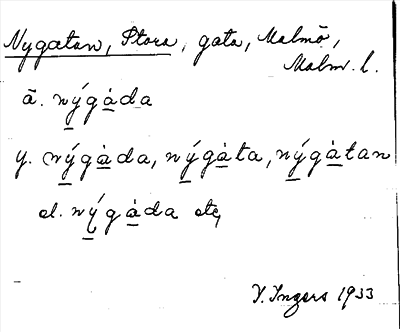 Nygatan, Stora, gata, Malmö,
Malm. l.
ā. nýgȧda
y. nýgȧda, nýgȧta, nýgȧtan
el. nýgȧda etc,
I. Ingers 1933